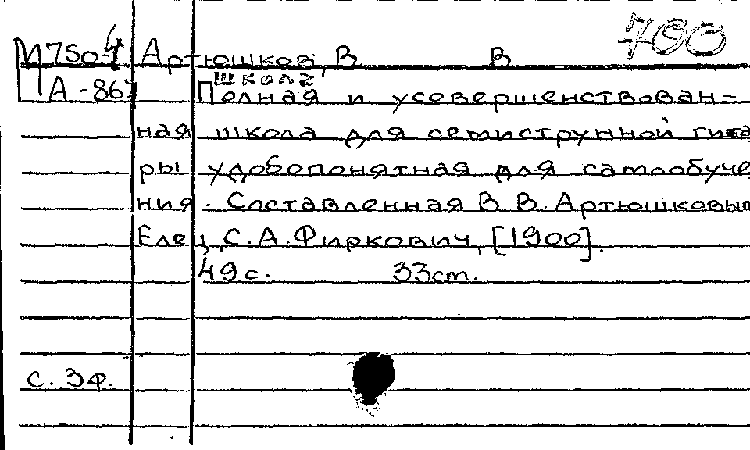 700
М750-4 Артюшков, В В
А-867 школа
Полная и усовершенствован-
ная школа для семиструнной гита
ры удобопонятная для самообуче
ния. Составленная В. В. Артюшковым
Елец, С. А. Фиркович, [1900].
49 с. 33 cm.
с. 3ф.